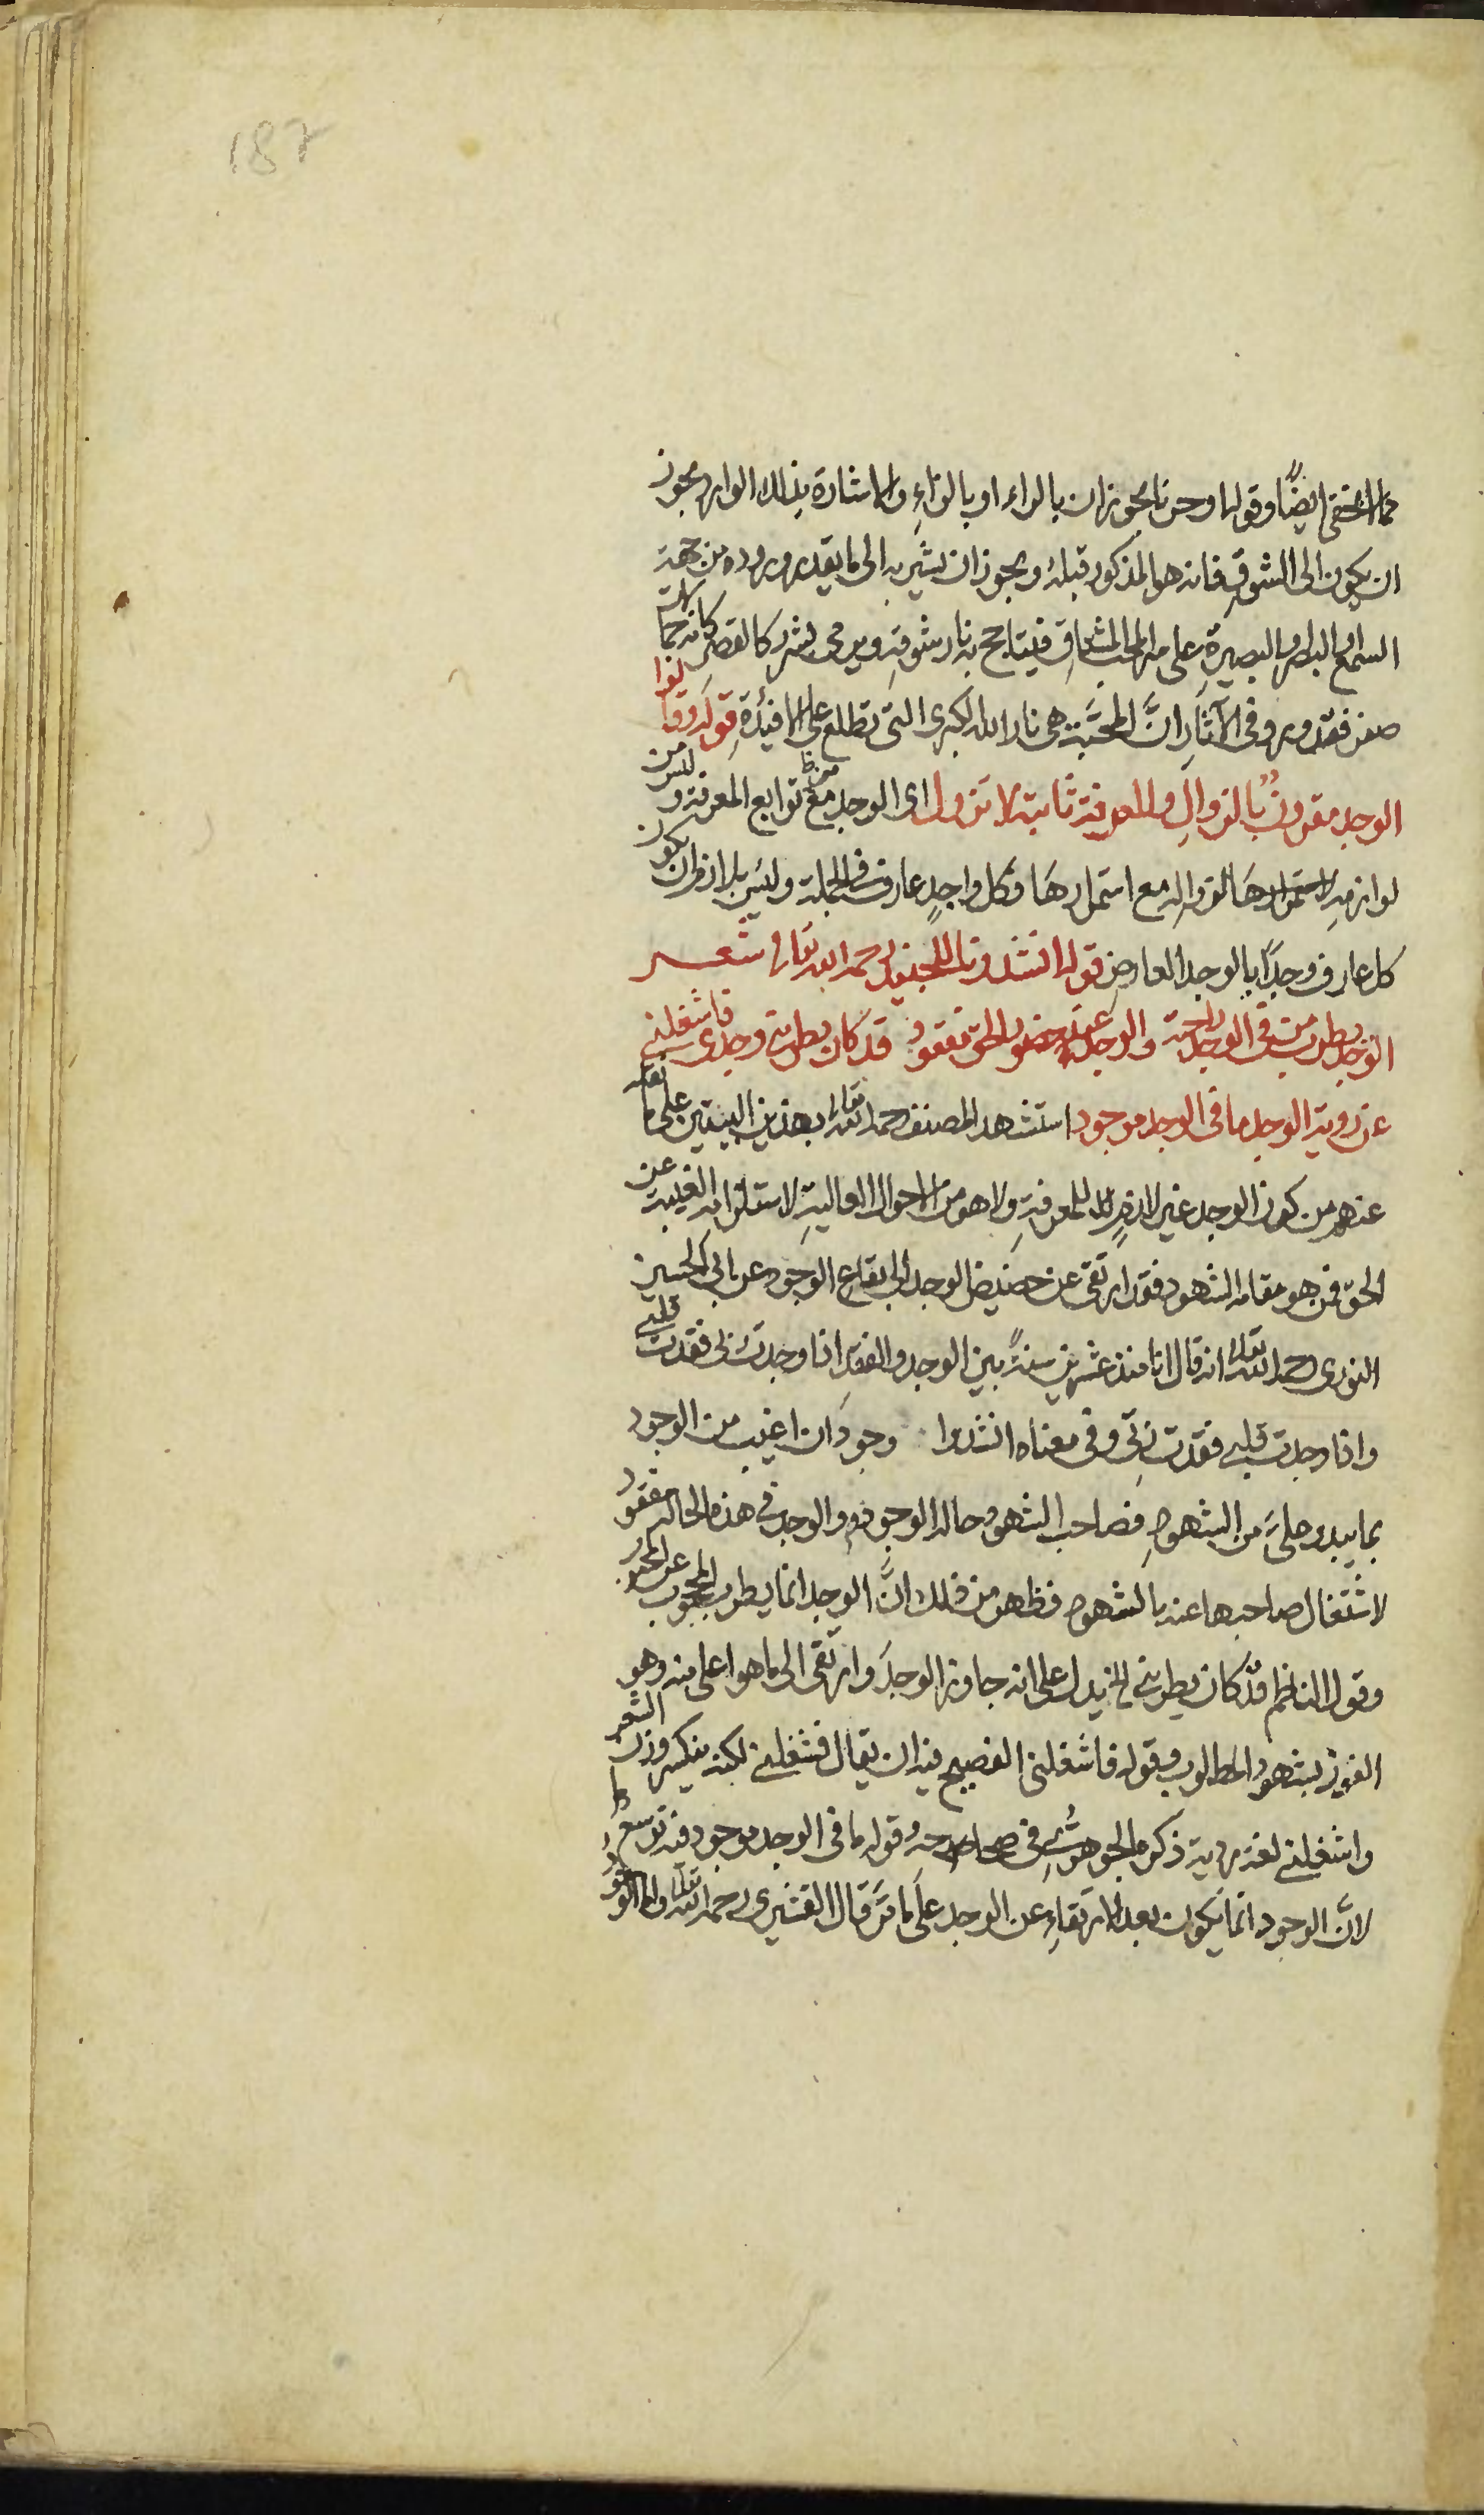 187
مما لا يخفى ايضًا وقوله او حزنا يجوز ان بالراء او بالزاءِ والاشارة بذلك الوارد يجوز
ان يكون الى الشوقِ فانه هو المذكور قبلهُ ويجوز ان يشير به الى ما يقدر وروده من جهة
السماع او البصر او البصيرةِ على سر المحب المشتاقِ فيتاجج به نار شوقهِ ويرمى بشرر كالقصر كانه جمالات
صفر فقد ورد فى الآثارِ انَّ المحبَّة هى نار الله الكبرى التى تطلع على الافئدةِ قوله وقالوا
الوجد مقرونٌ بالزوالِ والمعرفة ثابتة لا تزول اى الوجد من توابع المعرفة وليس من
لوازمهِ لاستمرارها لزواله مع استمرارهَا وكل واجدٍ عارف فى الجملة وليس بلازم ان يكون
كل عارف وجدًا بالوجد العارض قوله انشدونا للجنيد رحمه الله تعالى شعر
الوجد يطرب من فى الوجد راحته والوجد عند حضور الحق مفقود قد كان يطربنى وجدى فاشغلنى
عن روية الوجد ما فى الوجد موجود استشهد المصنف رحمه الله تعالى بهذين البيتين على ما نقله
عنهم من كون الوجد غير لازمٍ للمعرفةِ ولا هو من الاحوال العاليةِ لاستلزامه الغيبة عن
الحق فمن هو مقامه الشهود فقد ارتقى عن حضيض الوجد الى بقاع الوجود عن ابى الحسين
النورى رحمه الله تعالى انه قال انا منذ عشرين سنةً بين الوجد والفقد اذا وجدتُ ربى فقدت قلبى
واذا وجدت قلبى فقدت ربِّى وفى معناه انشدوا وجودى ان اغيب من الوجود
بما يبدو علىَّ من الشهودِ فصاحب الشهود حاله الوجود والوجد فى هذه الحالة مفقود
لاشتغال صاحبها عنه بالشهود فظهر من ذلك انَّ الوجد انما يطرب المحجوب عن
وقول الناظم قد كان يطربنى الخ يدل على انه جاوز الوجدَ وارتقى الى ما هو اعلى منه وهو
الفوز بشهود المطلوب وقوله فاشغلنى الفصيح فيه ان يقال فشغلنى لكنه ينكسر وزن الشعر
واشغلنى لغة رديَّة ذكره الجوهرىُّ فى صحاحه وقوله ما فى الوجد موجود فيه توسع
لانَّ الوجود انَّما يكون بعد الارتقاءِ عن الوجد على ما مرَّ قال القشيرى رحمه الله تعالى